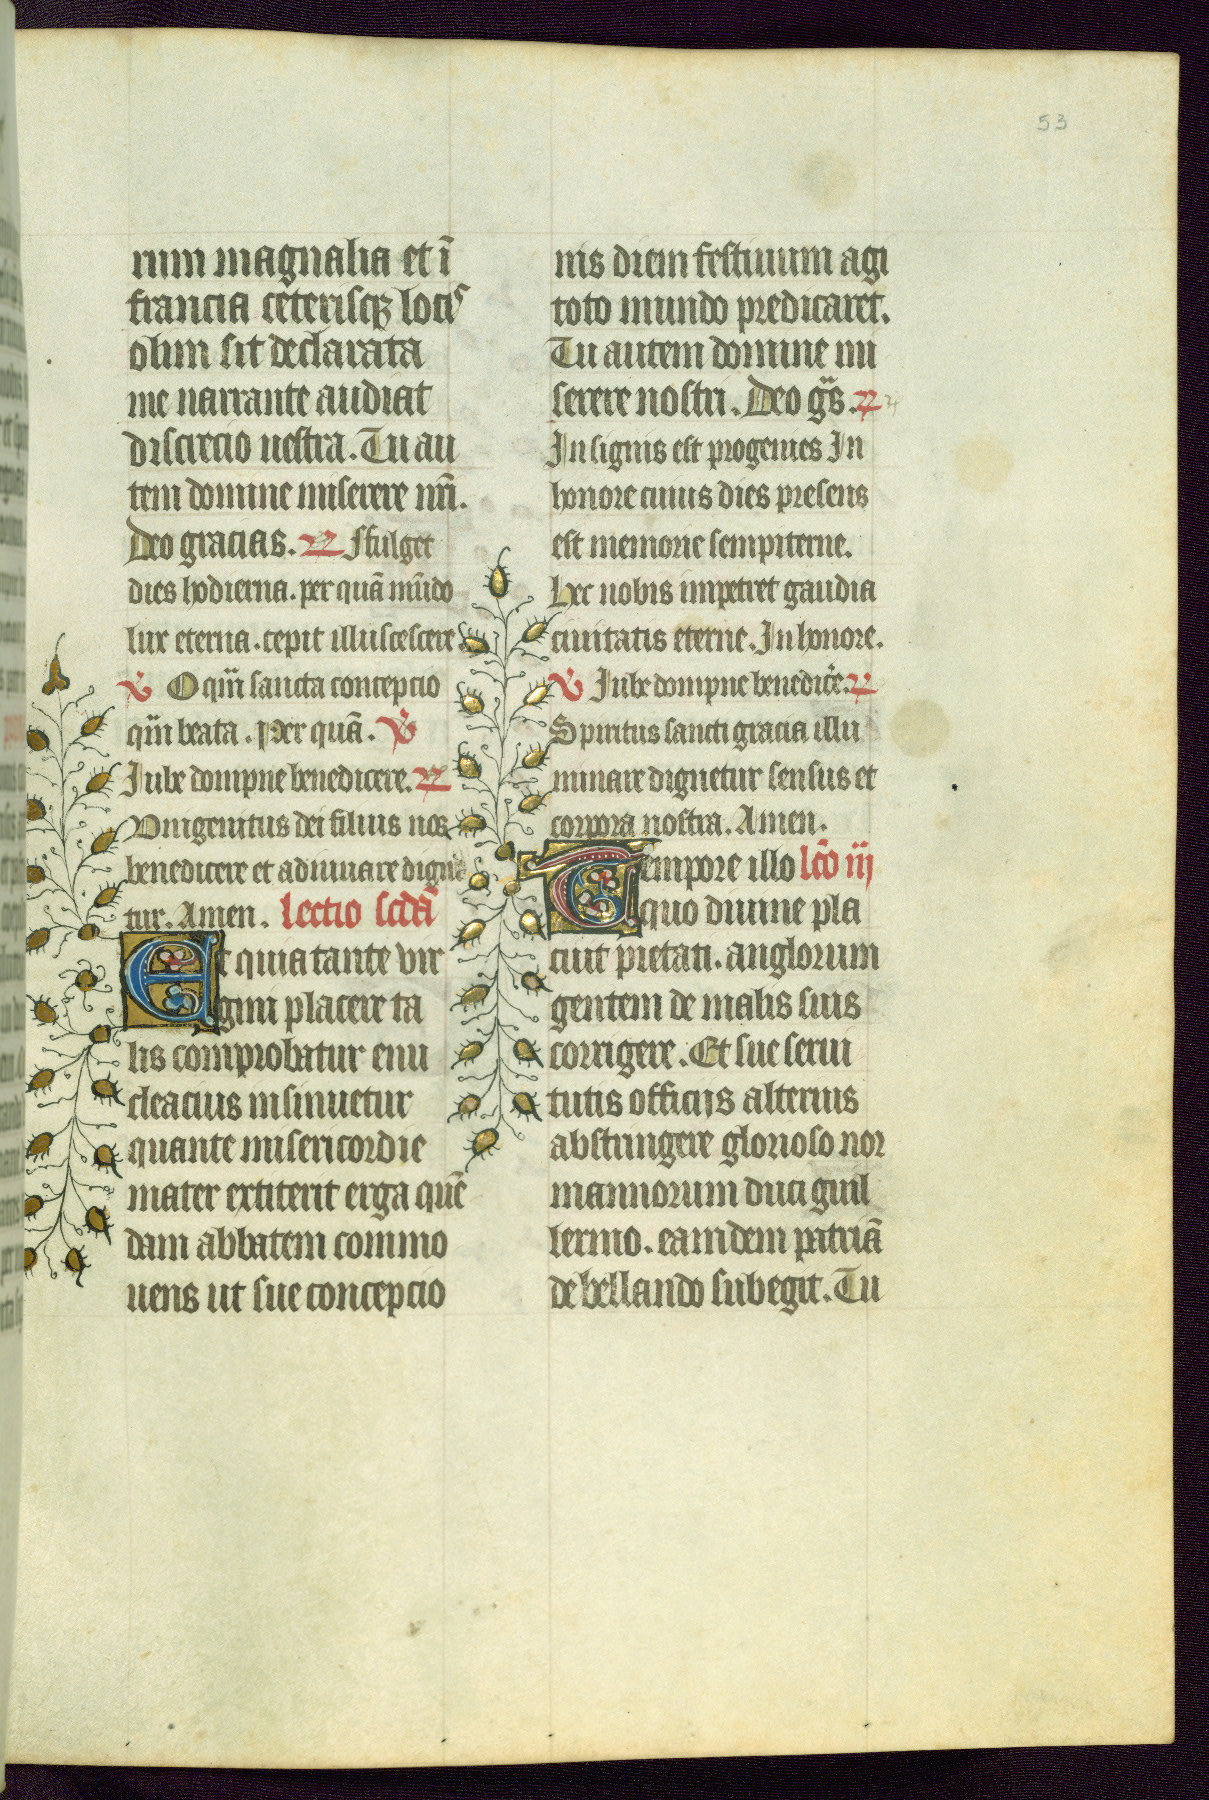 53
rum magnalia et ī
francia ceterisqꝫ locis
olim sit declarata
me narrante audiat
discrecio uestra. Tu au
tem domine miserere nr̄i.
Deo gracias. ℟ Ffulget
dies hodierna. per quā mūdo
lux eterna. cepit illuscescere
℣ O qm̄ sancta concepcio
qm̄ beata. Per quā. ℣
Iube dompne benedicere. ℟
Vnigenitus dei filius nos
benedicere et adiuuare digne
tur. Amen. Lectio scd̄a
Et quia tante vir
gini placere ta
lis comprobatur enu
cleacius insinuetur
quante misericordie
mater extiterit erga quē
dam abbatem commo
uens ut sue concepcio
nis diem festiuum agi
toto mundo predicaret.
Tu autem domine mi
serere nostri. Deo gr̄s. ℟
Insignis est progenies In
honore cuius dies presens
est memorie sempiterne.
Hec nobis impetret gaudia
ciuitatis eterne. In honore.
℣ Iube dompne benedic̄e. ℟
Spiritus sancti gracia illu
minare dignetur sensus et
corpora nostra. Amen.
Tempore illo lc̄o iij
quo diuine pla
cuit pietati. anglorum
gentem de malis suis
corrigere. Et sue serui
tutis officijs alterius
abstringere glorioso nor
mannorum duci guil
lermo. eamdem patriā
debellando subegit. Tu